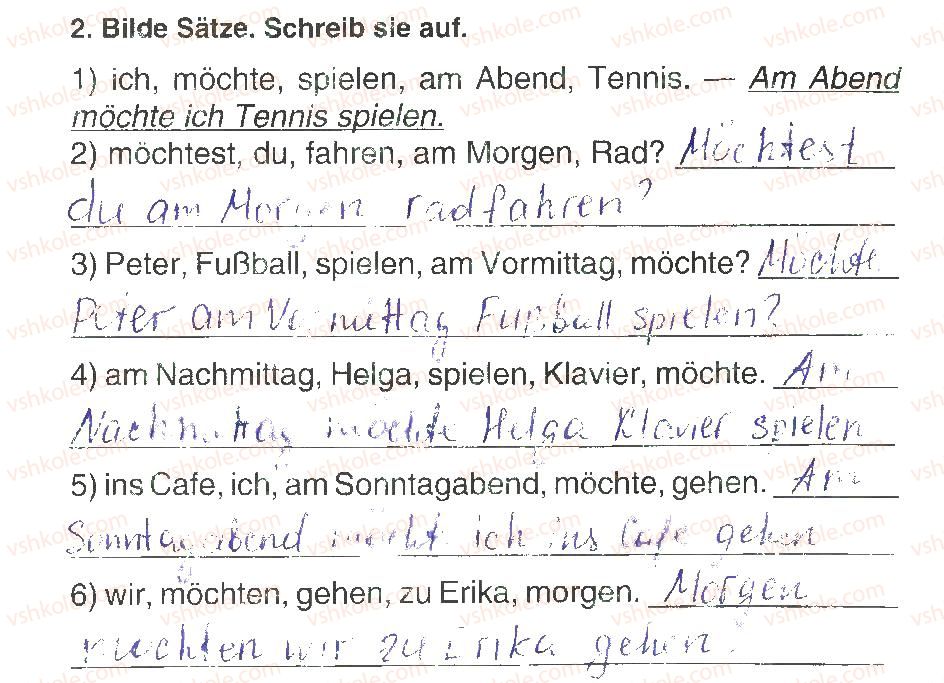 2. Bilde Sätze. Schreib sie auf.
1) ich, möchte, spielen, am Abend, Tennis. — Am Abend
möchte ich Tennis spielen.
2) möchtest, du, fahren, am Morgen, Rad? Möchtest
du am Morgen radfahren?
3) Peter, Fußball, spielen, am Vormittag, möchte? Möchte
Peter am Vormittag Fußball spielen?
4) am Nachmittag, Helga, spielen, Klavier, möchte. Am
Nachmittag möchte Helga Klavier spielen
5) ins Cafe, ich, am Sonntagabend, möchte, gehen. Am
Sonntagabend möcht ich ins Cafe gehen
6) wir, möchten, gehen, zu Erika, morgen. Morgen
mochten wir zu Erika gehen.